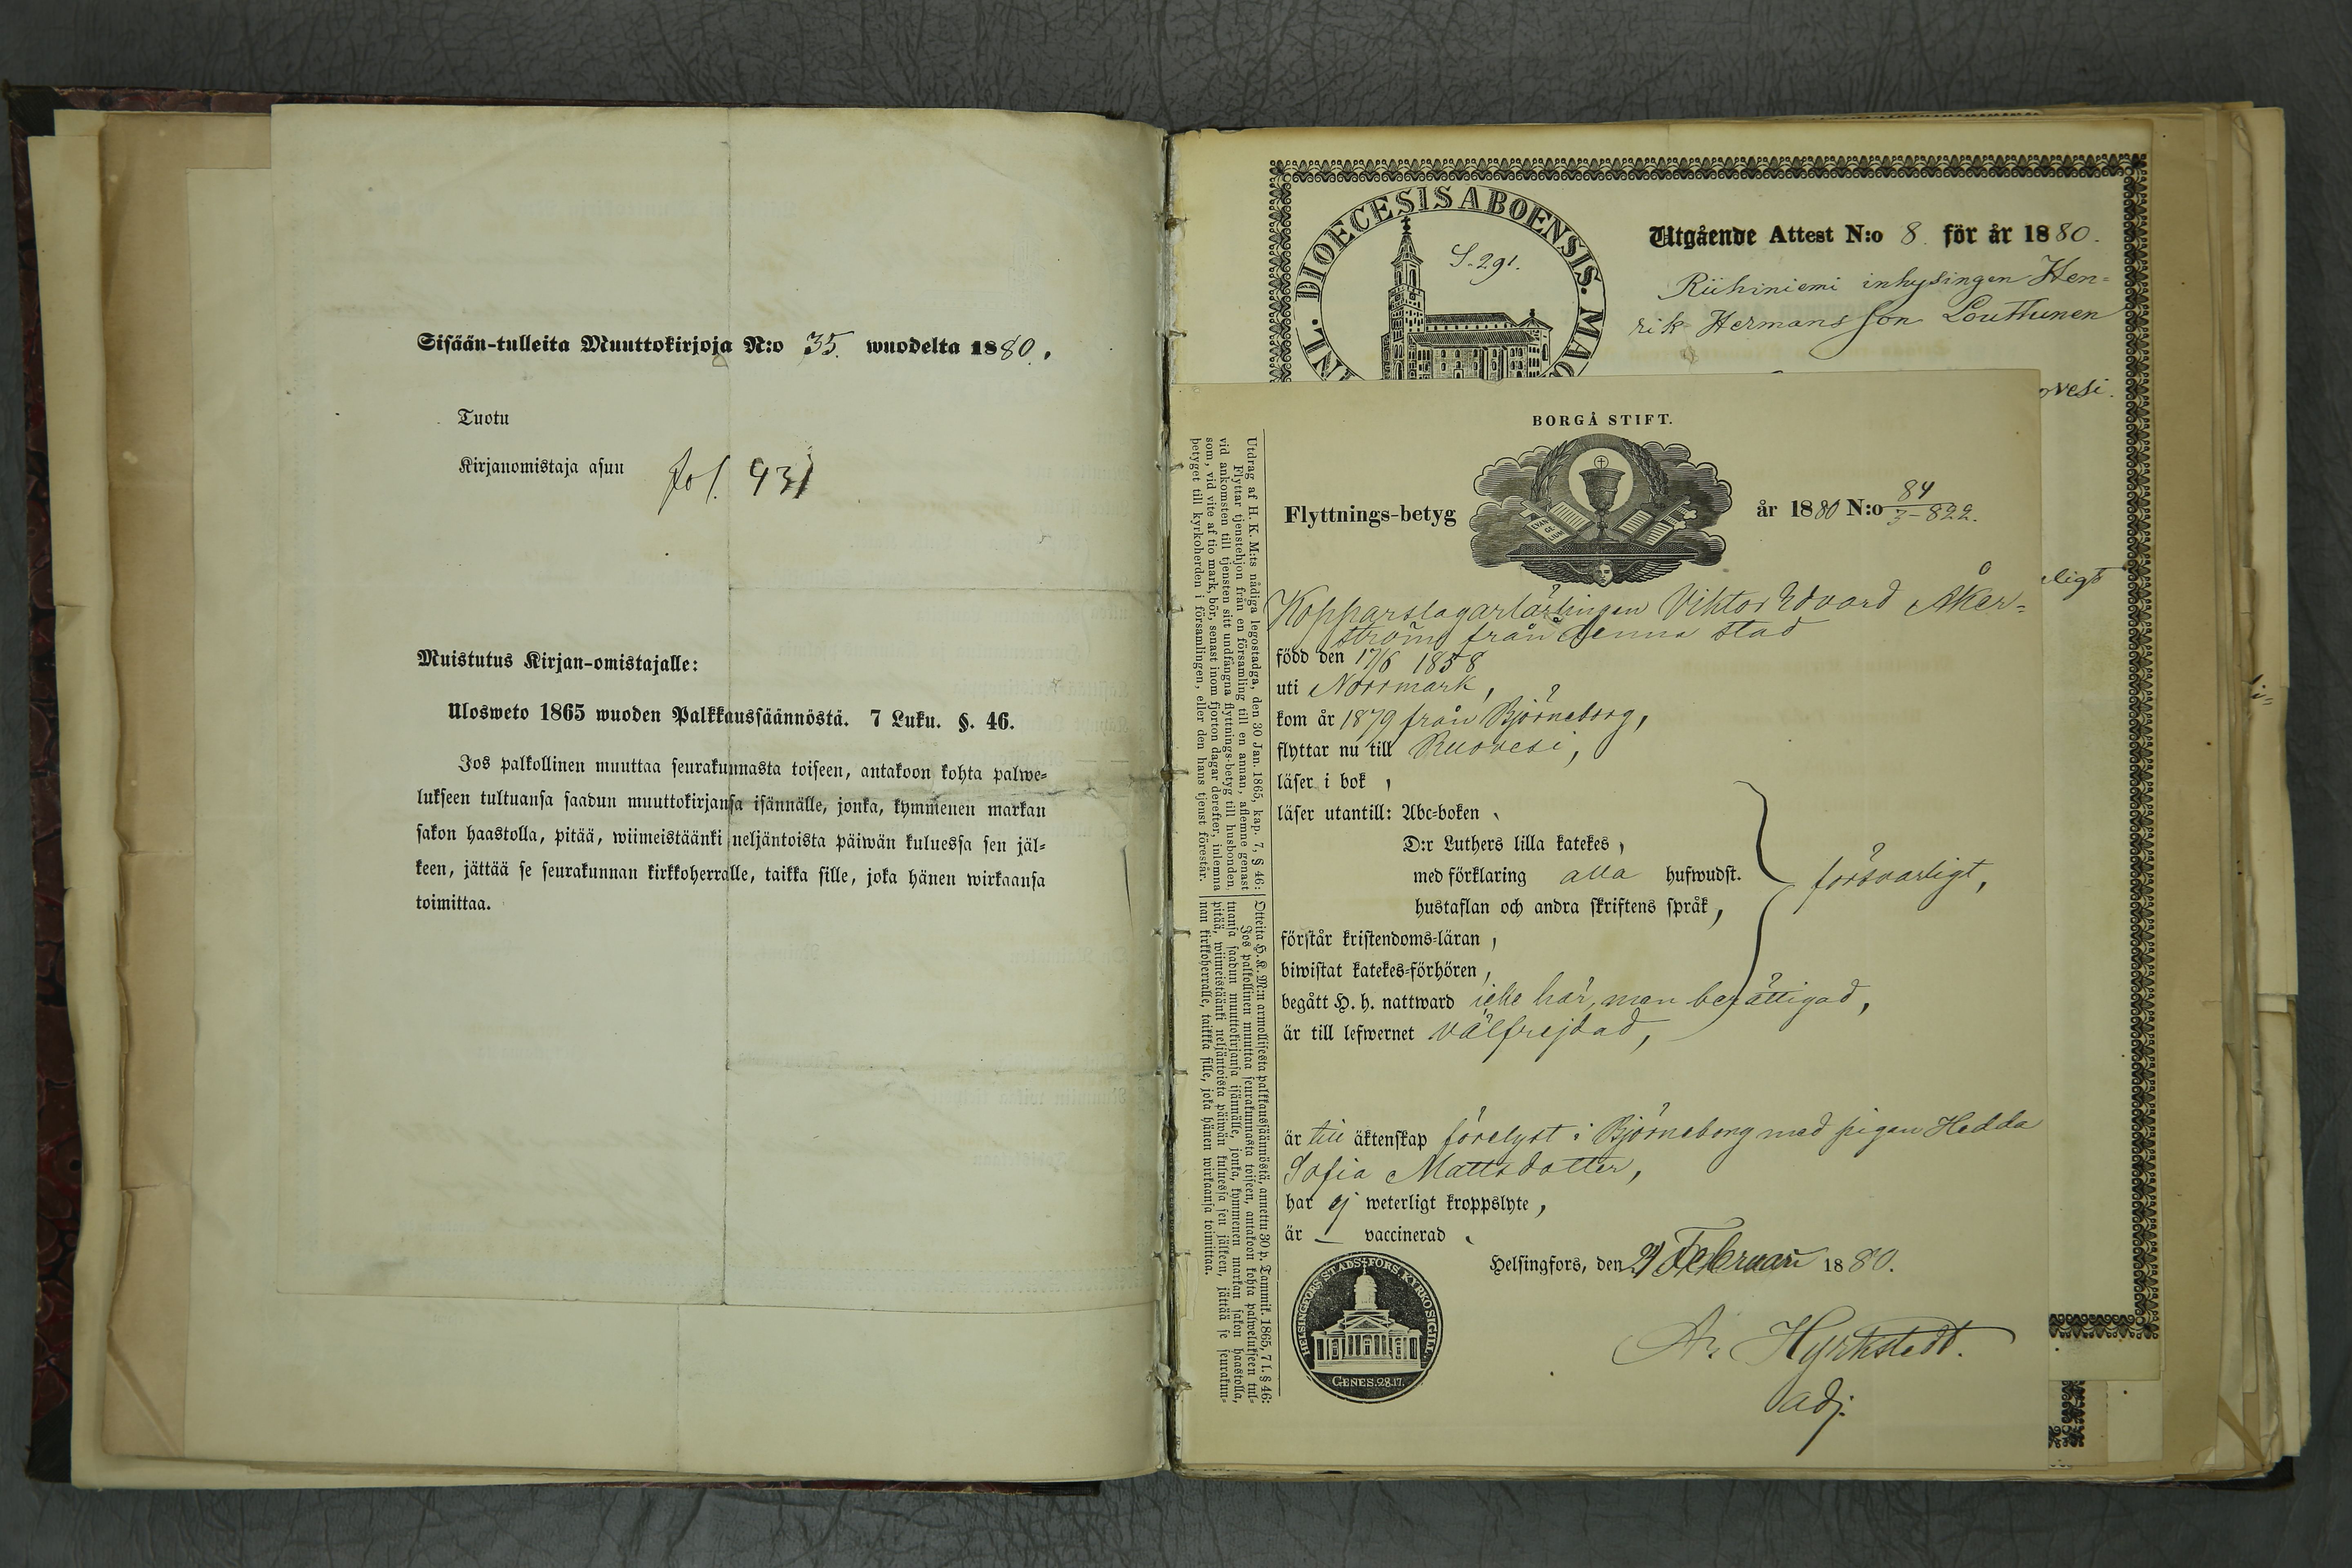 Sisään-tulleita Muuttokirjoja N:o 35. wuodelta 1880.
Tuotu
Kirjanomistaja asuu fol. 431
Muistutus Kirjan-omistajalle:
Ulosweto 1865 wuoden Palkkaussäännöstä. 7 Luku. §. 46.
Jos palkollinen muuttaa seurakunnasta toiseen, antakoon kohta palwe=
lukseen tultuansa saadun muuttokirjansa isännälle, jonka, kymmenen markan
sakon haastolla, pitää, wiimeistäänki neljäntoista päiwän kuluessa sen jäl=
keen, jättää se seurakunnan kirkkoherralle, taikka sille, joka hänen wirkaansa
toimittaa.
DIOECESIS ABOENSIS.
S. 291.
Utgående Attest N:o 8. för år 1880.
Riihiniemi inhysingen Hen=
rik Hermansson Louttunen
ovesi.
ligt
BORGÅ STIFT.
EVAN
GE
LIUM
Flyttnings-betyg år 1880 N:o 84
3-822.
Kopparslagarlärlingen Viktor Edvard Åker=
ström från denna stad
född den 17/6 1858
uti Norrmark,
kom år 1879 från Björneborg,
flyttar nu till Ruovesi,
läser i bok,
läser utantill: Abc-boken,
D:r Luthers lilla katekes,
med förklaring alla hufwudst.
försvarligt,
hustaflan och andra skriftens språk,
förstår kristendoms-läran,
biwistat katekes-förhören,
begått H. h. nattward icke här, men berättigad,
är till lefwernet välfrejdad,
är till äktenskap förelyst i Björneborg med pigan Hedda
Sofia Mattsdotter,
har ej weterligt kroppslyte,
är — vaccinerad.
Helsingfors, den 21 Februari 1880.
Hyrkstedt.
adj.
HELSINGFORS STADS FÖRS KYRKO SIGILL.
GENES. 28.17.
Utdrag af H. K. M:ts nådiga legostadga, den 30 Jan. 1865, kap. 7, § 46:
Flyttar tjenstehjon från en församling till en annan, aflemne genast
vid ankomsten till tjensten sitt undfångna flyttnings-betyg till husbonden,
som, vid vite af tio mark, bör, senast inom fjorton dagar derefter, inlemna
betyget till kyrkoherden i församlingen, eller den hans tjenst förestår.
Otteita H. K. M:n armollisesta palkkaussäännöstä, annettu 30 p. Tammik. 1865, 7 l. § 46:
Jos palkollinen muuttaa seurakunnasta toiseen, antakoon kohta palwelukseen tul=
tuansa saadun muuttokirjansa isännälle, jonka, kymmenen markan sakon haastolla,
pitää, wiimeistäänki neljäntoista päiwän kuluessa sen jälkeen, jättää se seurakun=
nan kirkkoherralle, taikka sille, joka hänen wirkaansa toimittaa.